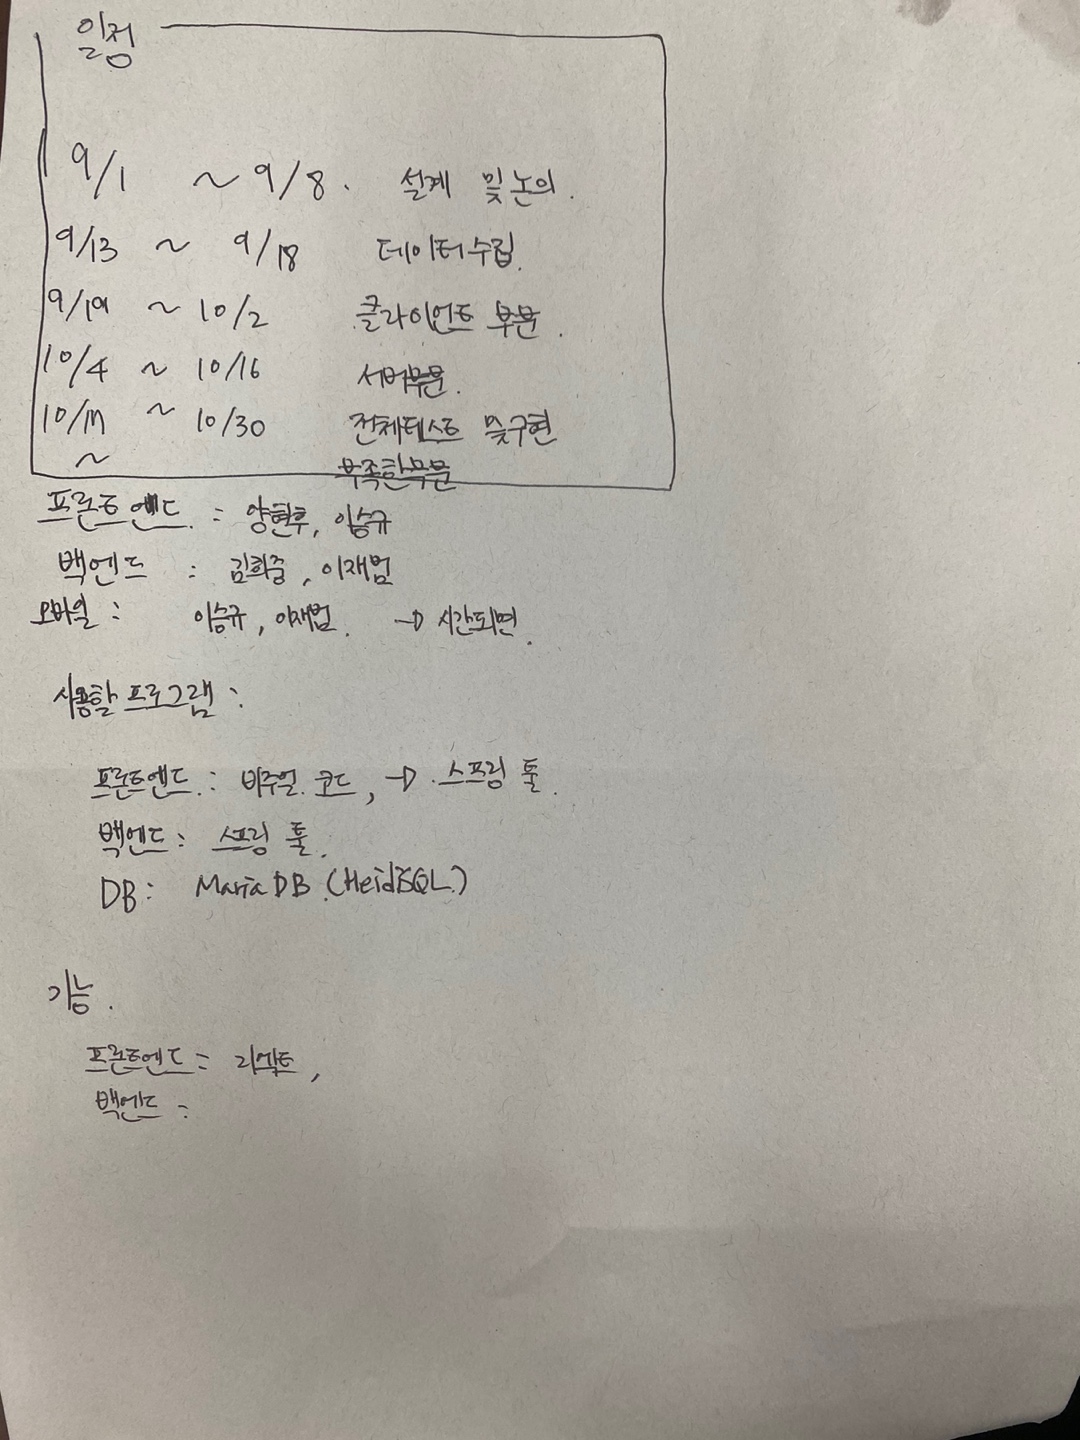 일정
9/1 ~ 9/8. 설계 및 논의.
9/13 ~ 9/18 데이터수집.
9/19 ~ 10/2 클라이언트 부문.
10/4 ~ 10/16 서버부문.
10/17 ~ 10/30 전체테스트 및구현
~ 부족한부문
프론트엔드. : 양현후, 이승규
백엔드 : 김희중, 이재범
모바일 : 이승규, 이재범. → 시간되면.
사용할 프로그램 :
프론트엔드. : 비주얼. 코드, → . 스프링 툴.
백엔드 : 스프링 툴.
DB : MariaDB.(HeidiSQL)
기능.
프론트엔드 : 리액트,
백엔드 :